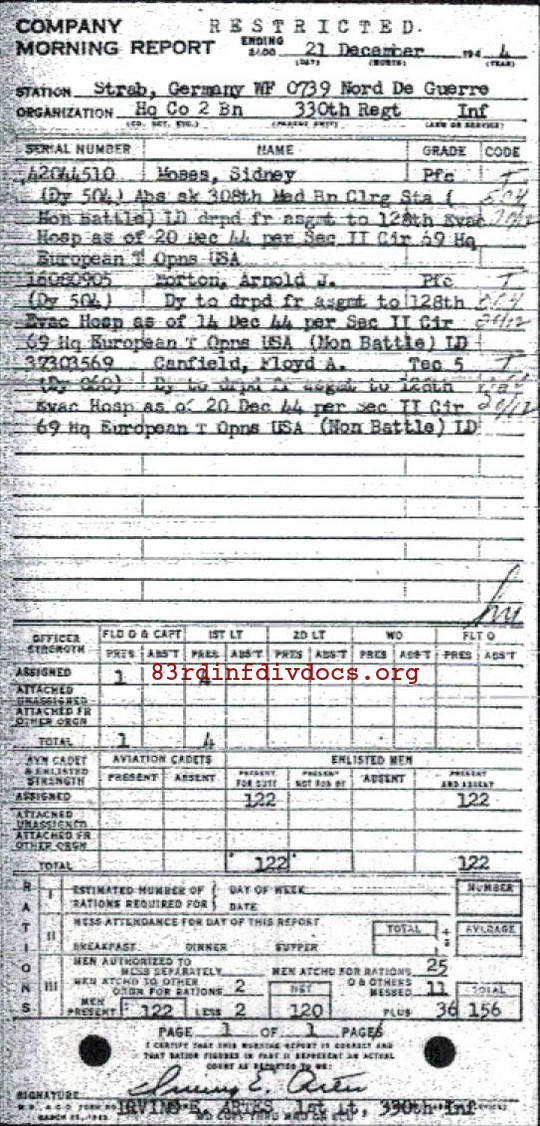 COMPANY RESTRICTED.
MORNING REPORT ENDING 2400 21 December 194 4
(DAY) (MONTH) (YEAR)
STATION Strab, Germany WF 0739 Nord De Guerre
ORGANIZATION Hq Co 2 Bn 330th Regt Inf
(CO. DET. ETC.) (PARENT UNIT) (ARM OR SERVICE)
SERIAL NUMBER NAME GRADE CODE
42044510 Moses, Sidney Pfc T
(Dy 504) Abs sk 308th Med Bn Clrg Sta ( 504
Non battle) LD drpd fr asgmt to 128th Evac 20/12
Hosp as of 20 Dec 44 per Sec II Cir 69 Hq
European T Opns USA
16080905 Horton, Arnold J. Pfc T
(Dy 504) Dy to drpd fr asgmt to 128th
Evac Hosp as of 14 Dec 44 per Sec II Cir 20/12
69 Hq European T Opns USA (Non Battle) LD
37303569 Canfield, Floyd A. Tec 5 T
(Dy 060) Dy to drpd fr asgmt to 128th
Evac Hosp as of 20 Dec 44 per Sec II Cir 20/12
69 Hq European T Opns USA (Non Battle) LD
OFFICER STRENGTH FLD O & CAPT 1ST LT 2D LT WO FLT O
PRES ABS'T PRES ABS'T PRES ABS'T PRES ABS'T PRES ABS'T
ASSIGNED 1 4
83rdinfdivdocs.org
ATTACHED UNASSIGNED
ATTACHED FR OTHER ORGN
TOTAL 1 4
AVN CADET & ENLISTED STRENGTH AVIATION CADETS ENLISTED MEN
PRESENT ABSENT PRESENT FOR DUTY PRESENT NOT FOR DY ABSENT PRESENT AND ABSENT
ASSIGNED 122 122
ATTACHED UNASSIGNED
ATTACHED FR OTHER ORGN
TOTAL 122 122
RATIONS
I ESTIMATED NUMBER OF RATIONS REQUIRED FOR { DAY OF WEEK NUMBER
DATE
II MESS ATTENDANCE FOR DAY OF THIS REPORT TOTAL ÷ 3 AVERAGE
BREAKFAST DINNER SUPPER
III MEN AUTHORIZED TO MESS SEPARATELY MEN ATCHD FOR RATIONS 25
MEN ATCHD TO OTHER ORGN FOR RATIONS 2 NET O & OTHERS MESSED 11 TOTAL
MEN PRESENT 122 LESS 2 120 PLUS 36 156
PAGE 1 OF 1 PAGES
I CERTIFY THAT THIS MORNING REPORT IS CORRECT AND
THAT RATION FIGURES IN PART II REPRESENT AN ACTUAL
COUNT AS REPORTED TO ME:
SIGNATURE Irving E. Artes
W.D., A.G.O. FORM NO. IRVING E. ARTES 1st Lt, 330th Inf
MARCH